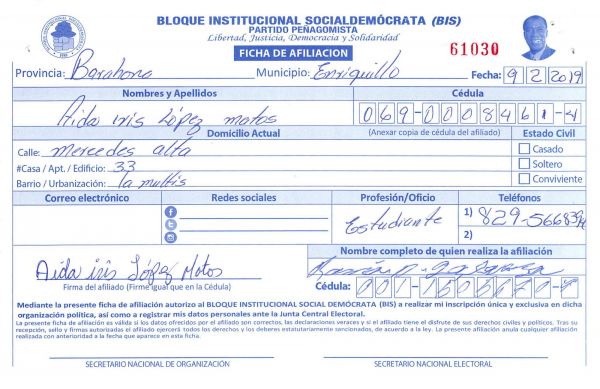 BLOQUE INSTITUCIONAL SOCIALDEMÓCRATA (BIS)
PARTIDO PEÑAGOMISTA
Libertad, Justicia, Democracia y Solidaridad
FICHA DE AFILIACION
61030
Provincia: Barahona Municipio: Enriquillo Fecha: 9 2 2019
Nombres y Apellidos Cédula
Aida iris López matos 069-0008461-4
Domicilio Actual (Anexar copia de cédula del afiliado) Estado Civil
Calle: mercedes alta Casado
#Casa / Apt. / Edificio: 33 Soltero
Barrio / Urbanización: la Conviviente
Correo electrónico Redes sociales Profesión/Oficio Teléfonos
Estudiante 1) 829-566
2)
Nombre completo de quien realiza la afiliación
Aida iris López Matos
Firma del afiliado (Firme igual que en la Cédula) Cédula:
Mediante la presente ficha de afiliación autorizo al BLOQUE INSTITUCIONAL SOCIAL DEMÓCRATA (BIS) a realizar mi inscripción única y exclusiva en dicha
organización política, así como a registrar mis datos personales ante la Junta Central Electoral.
La presente ficha de afiliación es válida si los datos ofrecidos por el afiliado son correctos, las declaraciones veraces y si el afiliado tiene el disfrute de sus derechos civiles y políticos. Tras su
recepción, sello y firmas autorizadas el afiliado ejercerá todos los derechos y los deberes estatutariamente sancionados, de acuerdo a la ley. La presente afiliación anula cualquier afiliación
realizada con anterioridad a la fecha que aparece en esta ficha.
SECRETARIO NACIONAL DE ORGANIZACIÓN SECRETARIO NACIONAL ELECTORAL